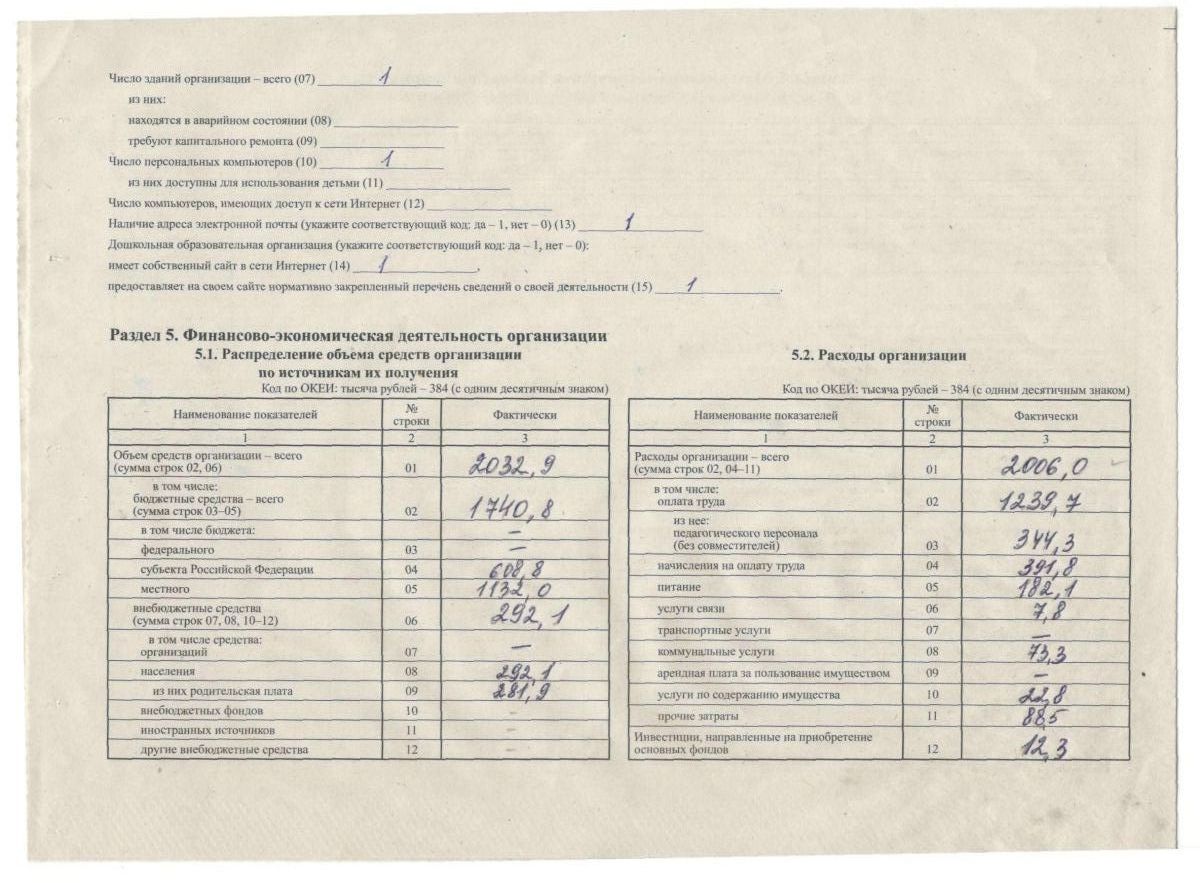 Число зданий организации – всего (07) 1
из них:
находятся в аварийном состоянии (08)
требуют капитального ремонта (09)
Число персональных компьютеров (10) 1
из них доступны для использования детьми (11)
Число компьютеров, имеющих доступ к сети Интернет (12)
Наличие адреса электронной почты (укажите соответствующий код: да – 1, нет – 0) (13) 1
Дошкольная образовательная организация (укажите соответствующий код: да – 1, нет – 0):
имеет собственный сайт в сети Интернет (14) 1 ,
предоставляет на своем сайте нормативно закрепленный перечень сведений о своей деятельности (15) 1 .
Раздел 5. Финансово-экономическая деятельность организации
5.1. Распределение объема средств организации
по источникам их получения
Код по ОКЕИ: тысяча рублей – 384 (с одним десятичным знаком)
Наименование показателей № строки Фактически
1 2 3
Объем средств организации – всего
(сумма строк 02, 06) 01 2032,9
в том числе:
бюджетные средства – всего
(сумма строк 03–05) 02 1740,8
в том числе бюджета: –
федерального 03 –
субъекта Российской Федерации 04 608,8
местного 05 1132,0
внебюджетные средства
(сумма строк 07, 08, 10–12) 06 292,1
в том числе средства:
организаций 07 –
населения 08 292,1
из них родительская плата 09 281,9
внебюджетных фондов 10 –
иностранных источников 11 –
другие внебюджетные средства 12 –
5.2. Расходы организации
Код по ОКЕИ: тысяча рублей – 384 (с одним десятичным знаком)
Наименование показателей № строки Фактически
1 2 3
Расходы организации – всего
(сумма строк 02, 04–11) 01 2006,0
в том числе:
оплата труда 02 1239,7
из нее:
педагогического персонала
(без совместителей) 03 344,3
начисления на оплату труда 04 391,8
питание 05 182,1
услуги связи 06 7,8
транспортные услуги 07 –
коммунальные услуги 08 73,3
арендная плата за пользование имуществом 09 –
услуги по содержанию имущества 10 22,8
прочие затраты 11 88,5
Инвестиции, направленные на приобретение
основных фондов 12 12,3